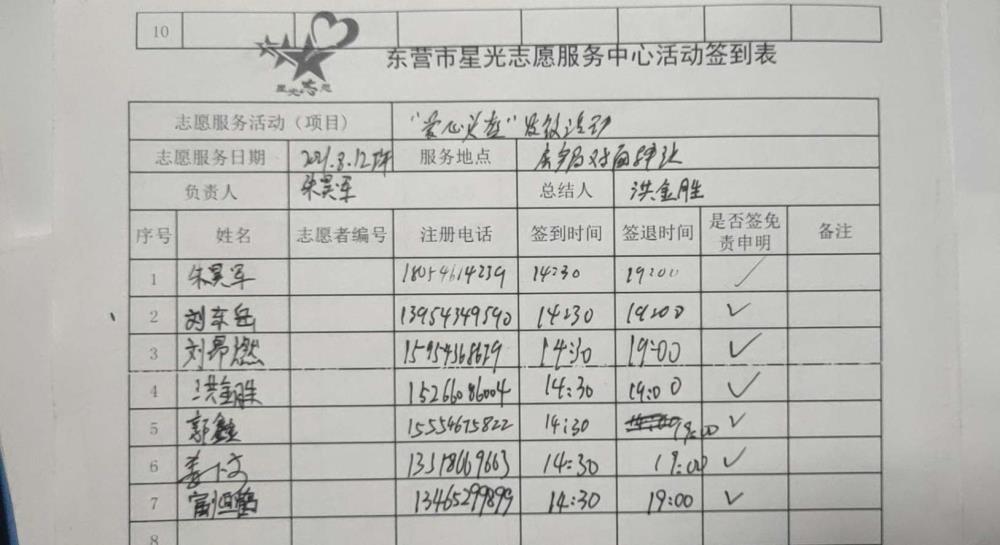 10
星光志愿
东营市星光志愿服务中心活动签到表
志愿服务活动（项目） "爱心义卖" 活动
志愿服务日期 2021.8.12 服务地点 对面
负责人 朱昊军 总结人 洪金胜
序号 姓名 志愿者编号 注册电话 签到时间 签退时间 是否签免责申明 备注
1 朱昊军 18054614239 14:30 19:00 ✓
2 刘东岳 13954349590 14:30 19:00 ✓
3 刘昂燃 15954368679 14:30 19:00 ✓
4 洪金胜 15266086004 14:30 19:00 ✓
5 郭鑫 15554675822 14:30 19:00 ✓
6 姜 14:30 19:00 ✓
7 13465299899 14:30 19:00 ✓
8